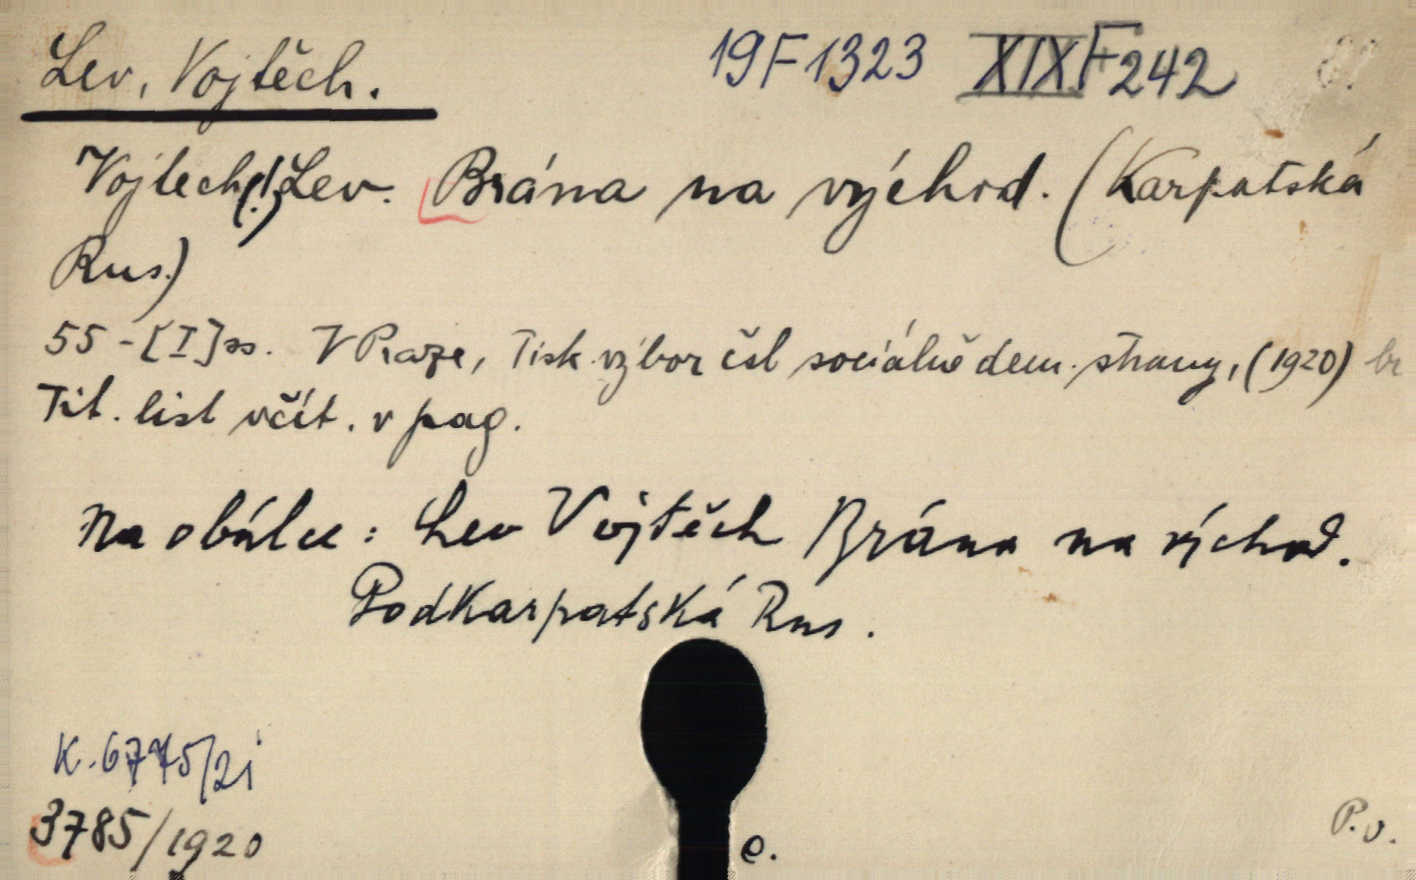 Lev, Vojtěch. 19F1323 XIXF242
Vojtech(!) Lev. Brána na východ. (Karpatská
Rus.)
55-[I] ss. V Praze, Tisk. výbor čsl sociálně dem. strany, (1920) br
Tit. list včít. v pag.
Na obálce: Lev Vojtěch Brána na východ.
Podkarpatská Rus.
K.6775/21
3785/1920
P.v.
e.